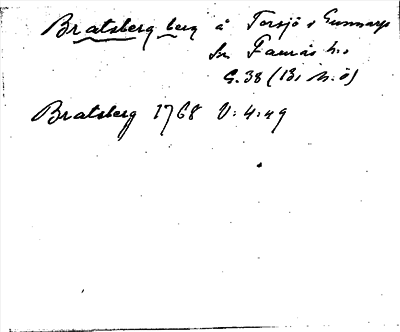 Bratsberg berg å Torsjö s Gunnarps
sn Faurås h.
G.38 (13, n.ö)
Bratsberg 1768 V:4:49